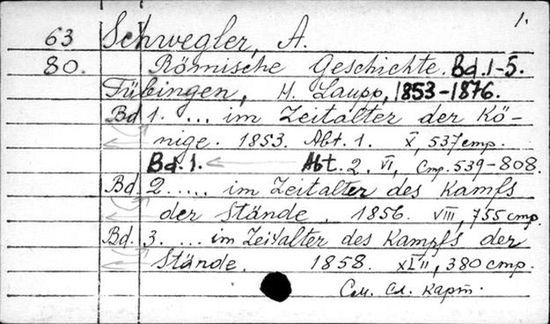 1.
63 Schwegler, A.
80. Römische Geschichte. Bd. 1-5.
Tübingen, H. Laupp, 1853-1876.
Bd 1. ... im Zeitalter der Kö-
nige. 1853. Abt. 1. X, 537 стр.
Bd. 1. ← Abt. 2. VI, стр. 539-808.
Bd 2..... im Zeitalter des Kamfs
der Stände. 1856. VIII, 755 стр.
Bd. 3. ... im Zeitalter des Kampfs der
Stände. 1858. XLII, 380 стр.
См. сл. карт.